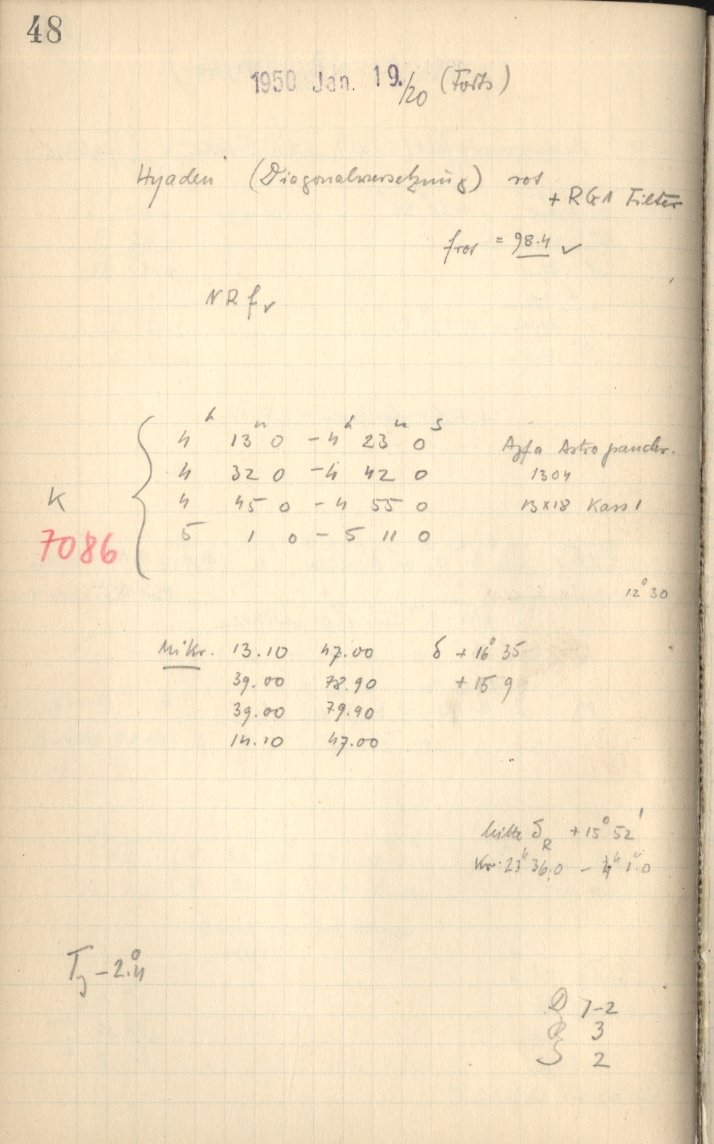 48
1950 Jan. 19./20 (Forts)
Hyaden (Diagonalversetzung) rot
+ RG1 Filter
frot = 98.4 ✓
NR f ✓
4 h 13 m 0 - 4 h 23 m 0 s
4 32 0 - 4 42 0
4 45 0 - 4 55 0
5 1 0 - 5 11 0
Agfa Astro panchr.
1304
13x18 Kass 1
K
7086
12° 30
Mikr. 13.10 47.00 δ + 16° 35
39.00 78.90 + 15 9
39.00 79.90
14.10 47.00
Mitte δR + 15° 52'
Kr. 23h 36.0 - 1.0
T - 2.°4
1-2
3
S 2